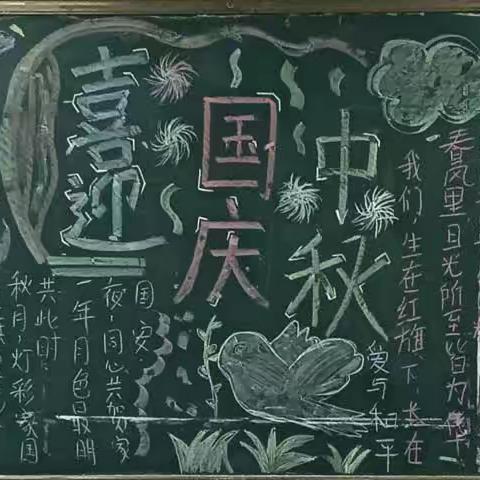 喜迎
国庆
中秋
春风里
目光所至皆为华
我们 生在红旗下 长在
爱与和平
国安
夜,同心共贺家
一年月色最明
共此时
秋月,灯彩家国